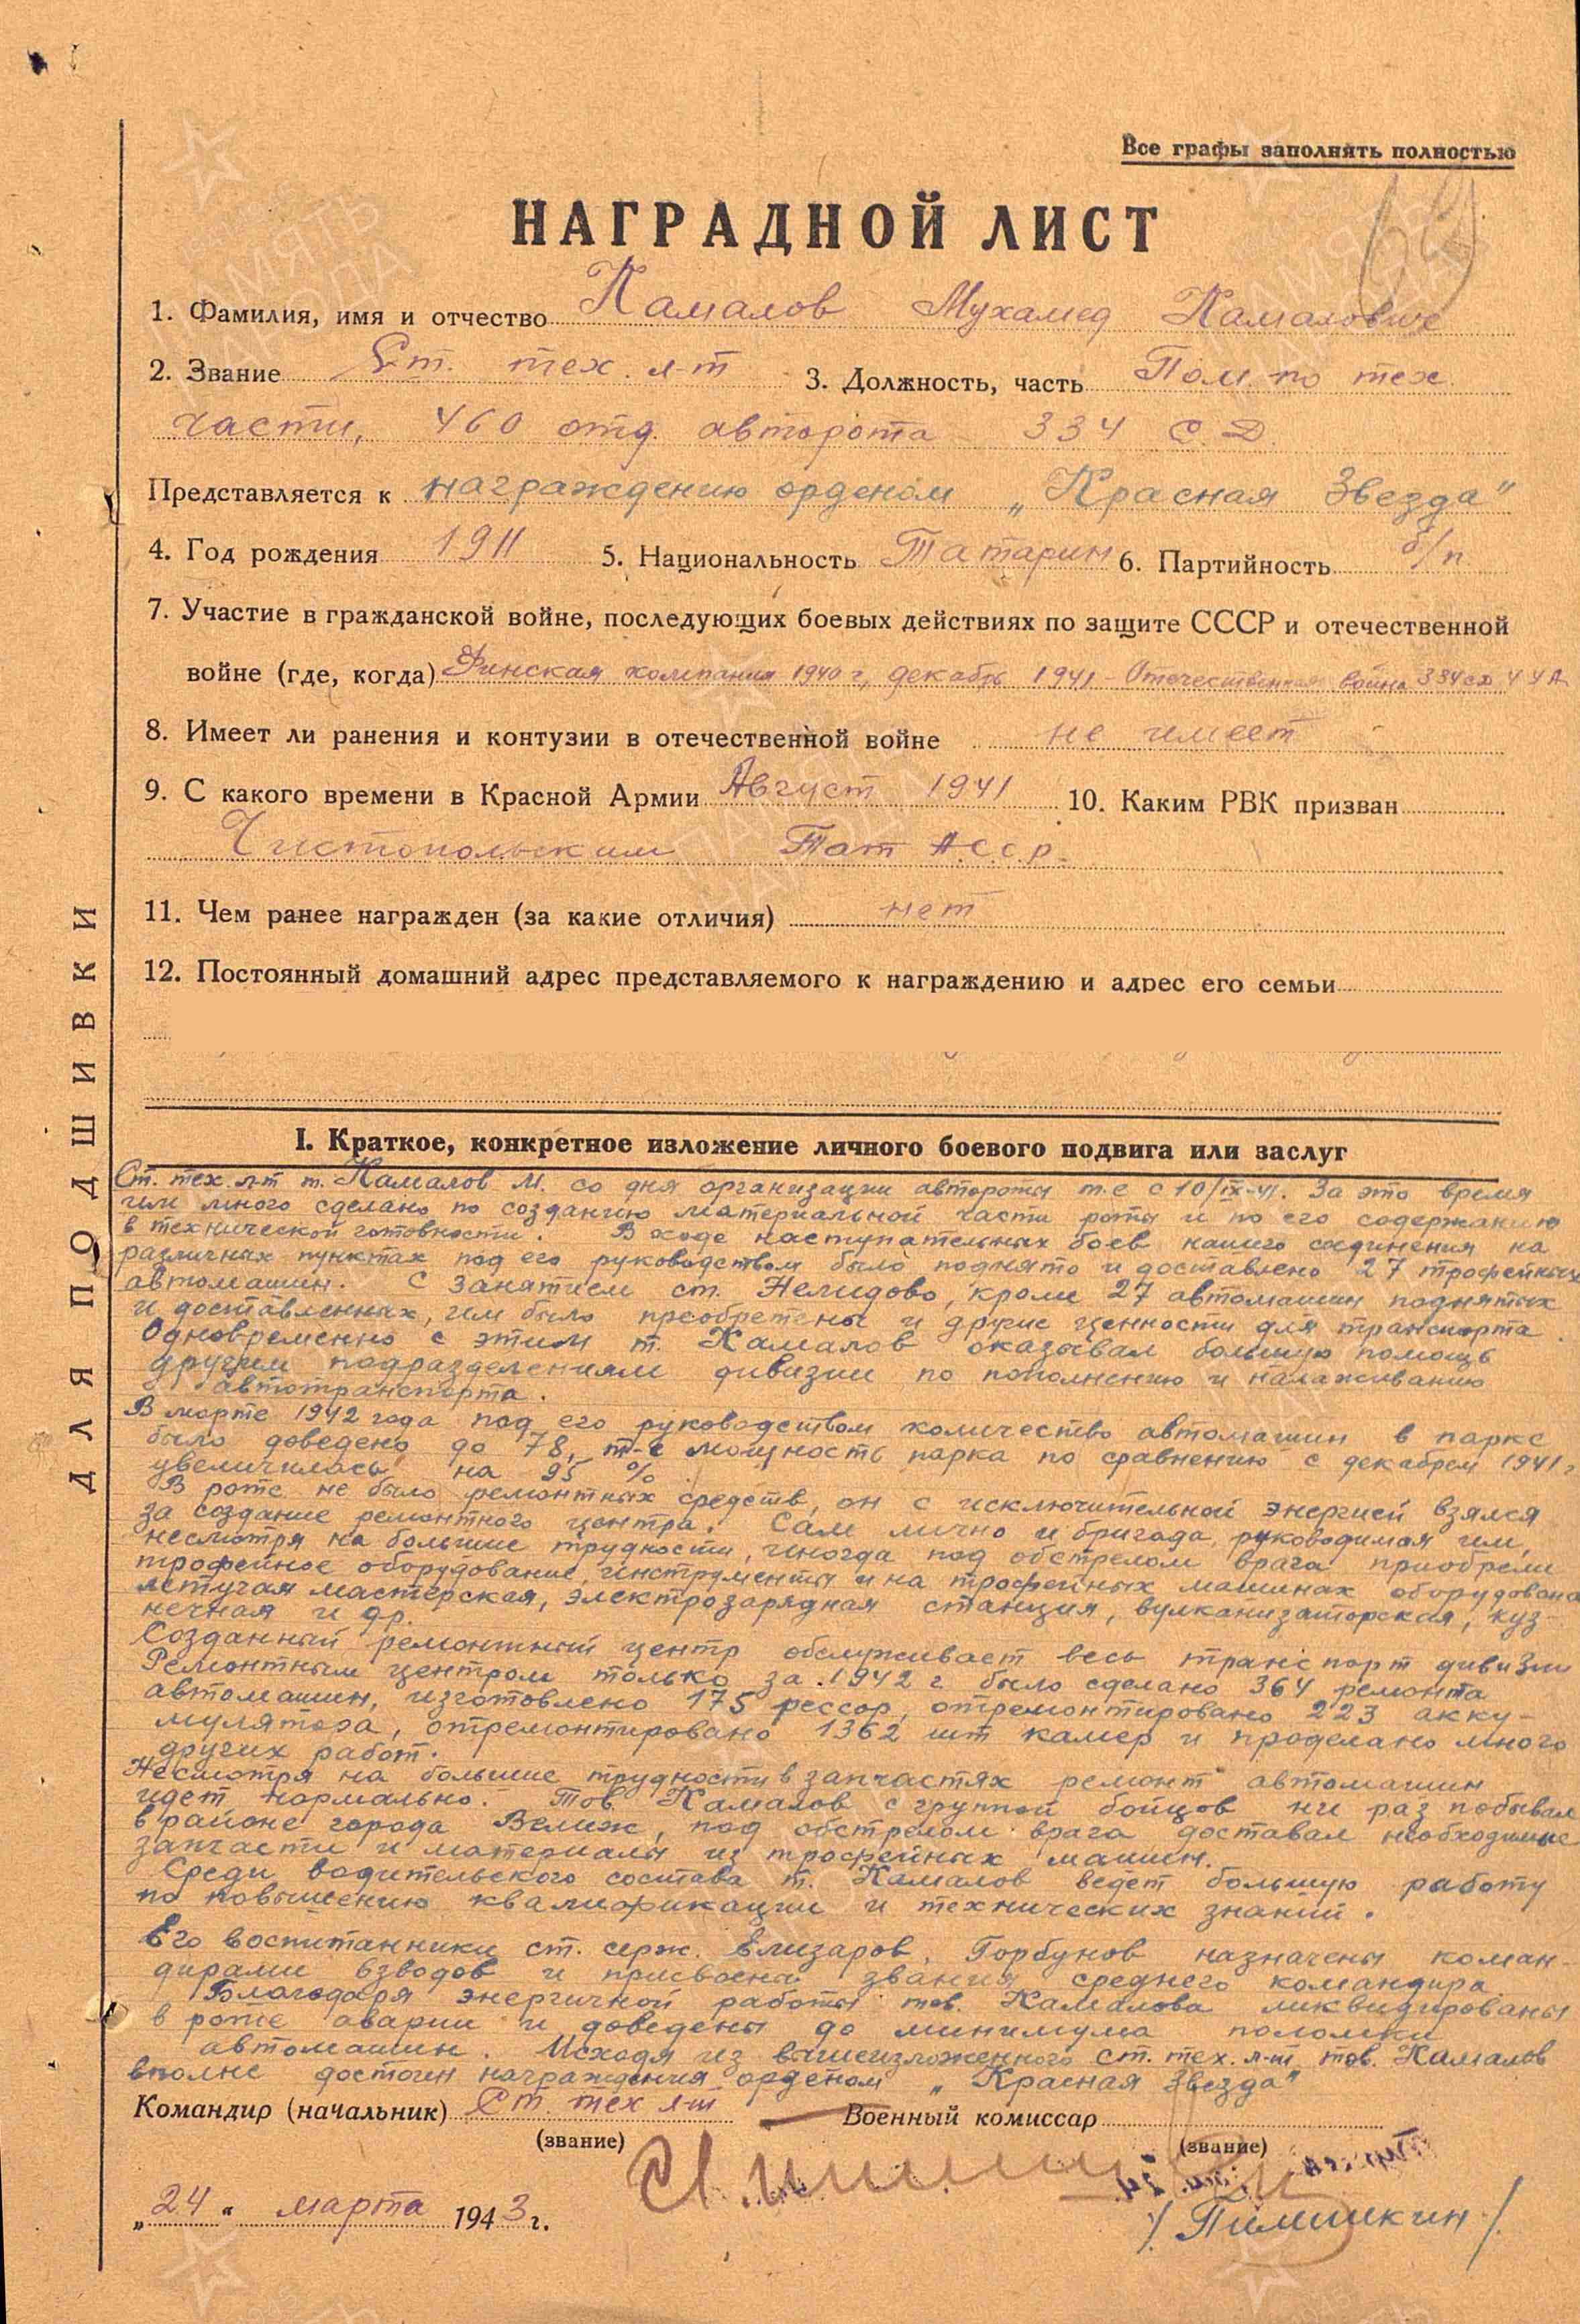 Все графы заполнять полностью
69
НАГРАДНОЙ ЛИСТ
1. Фамилия, имя и отчество Камалов Мухамед Камалович
2. Звание Ст. тех. л-т 3. Должность, часть Пом. по тех.
части, 460 отд. авторота 334 С.Д.
Представляется к награждению орденом „Красная Звезда"
4. Год рождения 1911 5. Национальность Татарин 6. Партийность б/п
7. Участие в гражданской войне, последующих боевых действиях по защите СССР и отечественной
войне (где, когда) Финская компания 1940 г, декабрь 1941 - Отечественная война 334 сд 4 УА
8. Имеет ли ранения и контузии в отечественной войне не имеет
9. С какого времени в Красной Армии Август 1941 10. Каким РВК призван
Чистопольским Тат А.С.С.Р.
11. Чем ранее награжден (за какие отличия) нет
12. Постоянный домашний адрес представляемого к награждению и адрес его семьи
I. Краткое, конкретное изложение личного боевого подвига или заслуг
Ст. тех. л-т т. Камалов М. со дня организации авторота т.е с 10/IX-41. За это время
им много сделано по созданию материальной части роты и по его содержанию
в технической готовности. В ходе наступательных боев нашего соединения на
различных пунктах под его руководством было поднято и доставлено 27 трофейных
автомашин. С занятием ст. Нелидово, кроме 27 автомашин поднятых
и доставленных, им было преобретены и другие ценности для транспорта.
Одновременно с этим т. Камалов оказывал большую помощь
другим подразделениям дивизии по пополнению и налаживанию
автотранспорта.
В марте 1942 года под его руководством количество автомашин в парке
было доведено до 78, т-е мощность парка по сравнению с декабрем 1941 г
увеличилась на 95 %.
В роте не было ремонтных средств, он с исключительной энергией взялся
за создание ремонтного центра. Сам лично и бригада, руководимая им,
несмотря на большие трудности, иногда под обстрелом врага приобрели
трофейное оборудование, инструменты и на трофейных машинах оборудована
летучая мастерская, электрозарядная станция, вулканизаторская, куз-
нечная и др.
Созданный ремонтный центр обслуживает весь транспорт дивизии
Ремонтным центром только за 1942 г было сделано 364 ремонта
автомашин, изготовлено 175 рессор, отремонтировано 223 акку-
мулятора, отремонтировано 1362 шт камер и проделано много
других работ.
Несмотря на большие трудности в запчастях ремонт автомашин
идет нормально. Тов. Камалов с группой бойцов ни раз побывал
в районе города Велиж, под обстрелом врага доставал необходимые
запчасти и материалы из трофейных машин.
Среди водительского состава т. Камалов ведет большую работу
по повышению квалификации и технических знаний.
Его воспитанники ст. серж. Елизаров, Горбунов назначены коман-
дирами взводов и присвоена звания среднего командира.
Благодаря энергичной работы тов. Камалова ликвидированы
в роте аварии и доведены до минимума поломки
автомашин. Исходя из вышеизложенного ст. тех. л-т тов. Камалов
вполне достоин награждения орденом „Красная Звезда"
Командир (начальник) Ст. тех л-т Военный комиссар
(звание) (звание)
„24" марта 1943 г.
/Пимишкин/
ДЛЯ ПОДШИВКИ